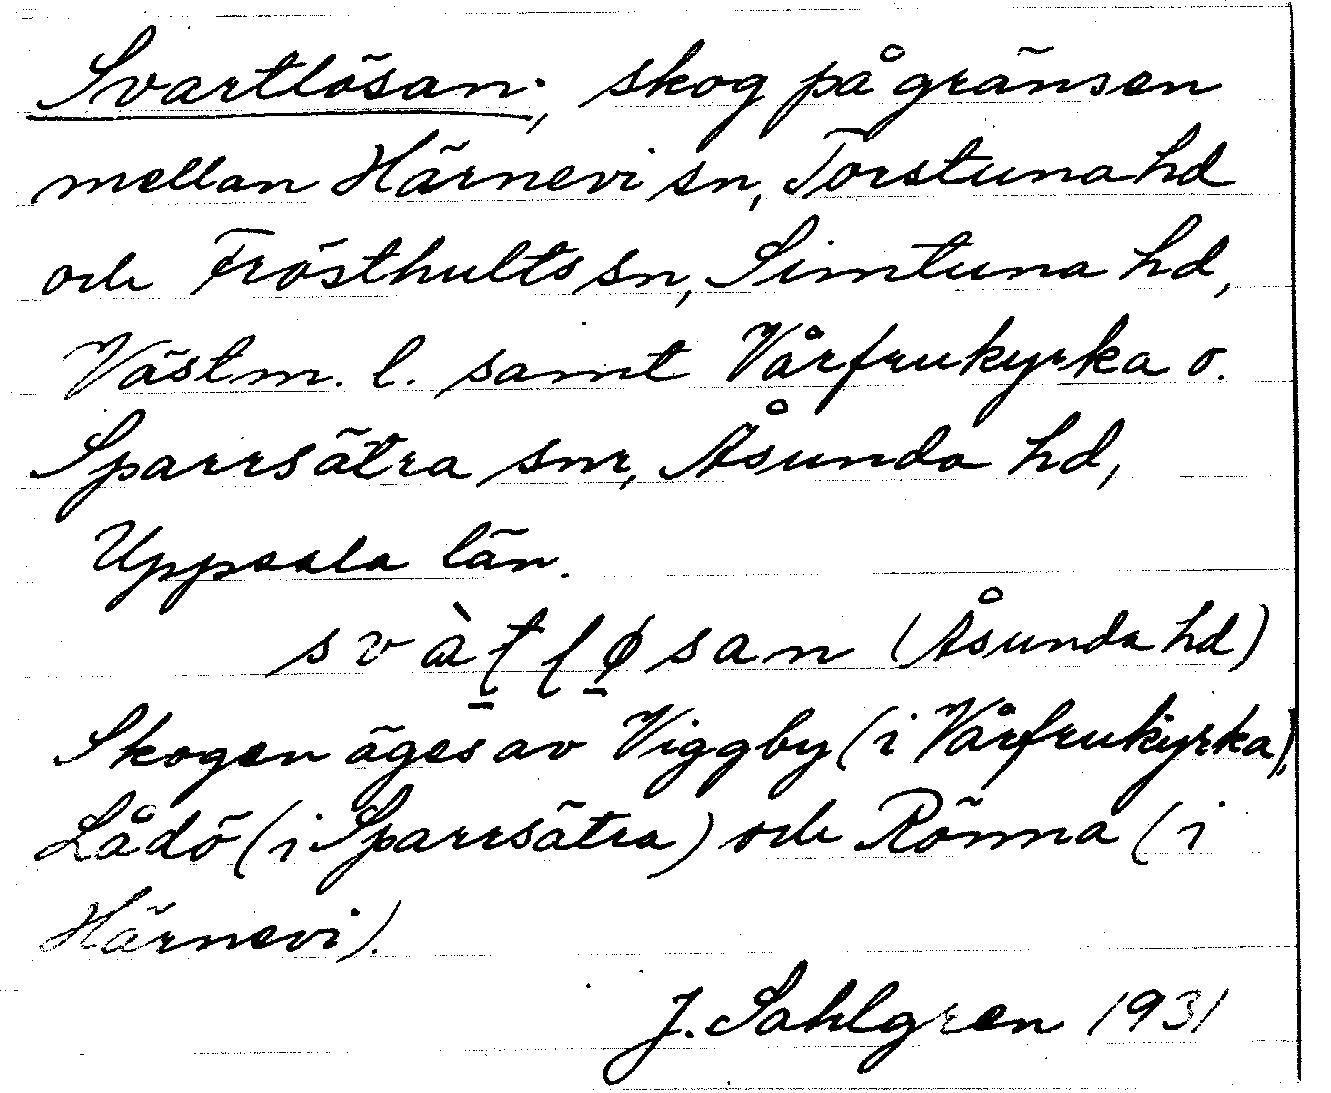 Svartlösan, skog på gränsen
mellan Härnevi sn, Torstuna hd
och Frösthults sn, Simtuna hd,
Västm. l. samt Vårfrukyrka o.
Sparrsätra snr, Åsunda hd,
Uppsala län.
svàṯlø̱san (Åsunda hd)
Skogen äges av Viggby (i Vårfrukyrka),
Lådö (i Sparrsätra) och Rönna (i
Härnevi).
J. Sahlgren 1931